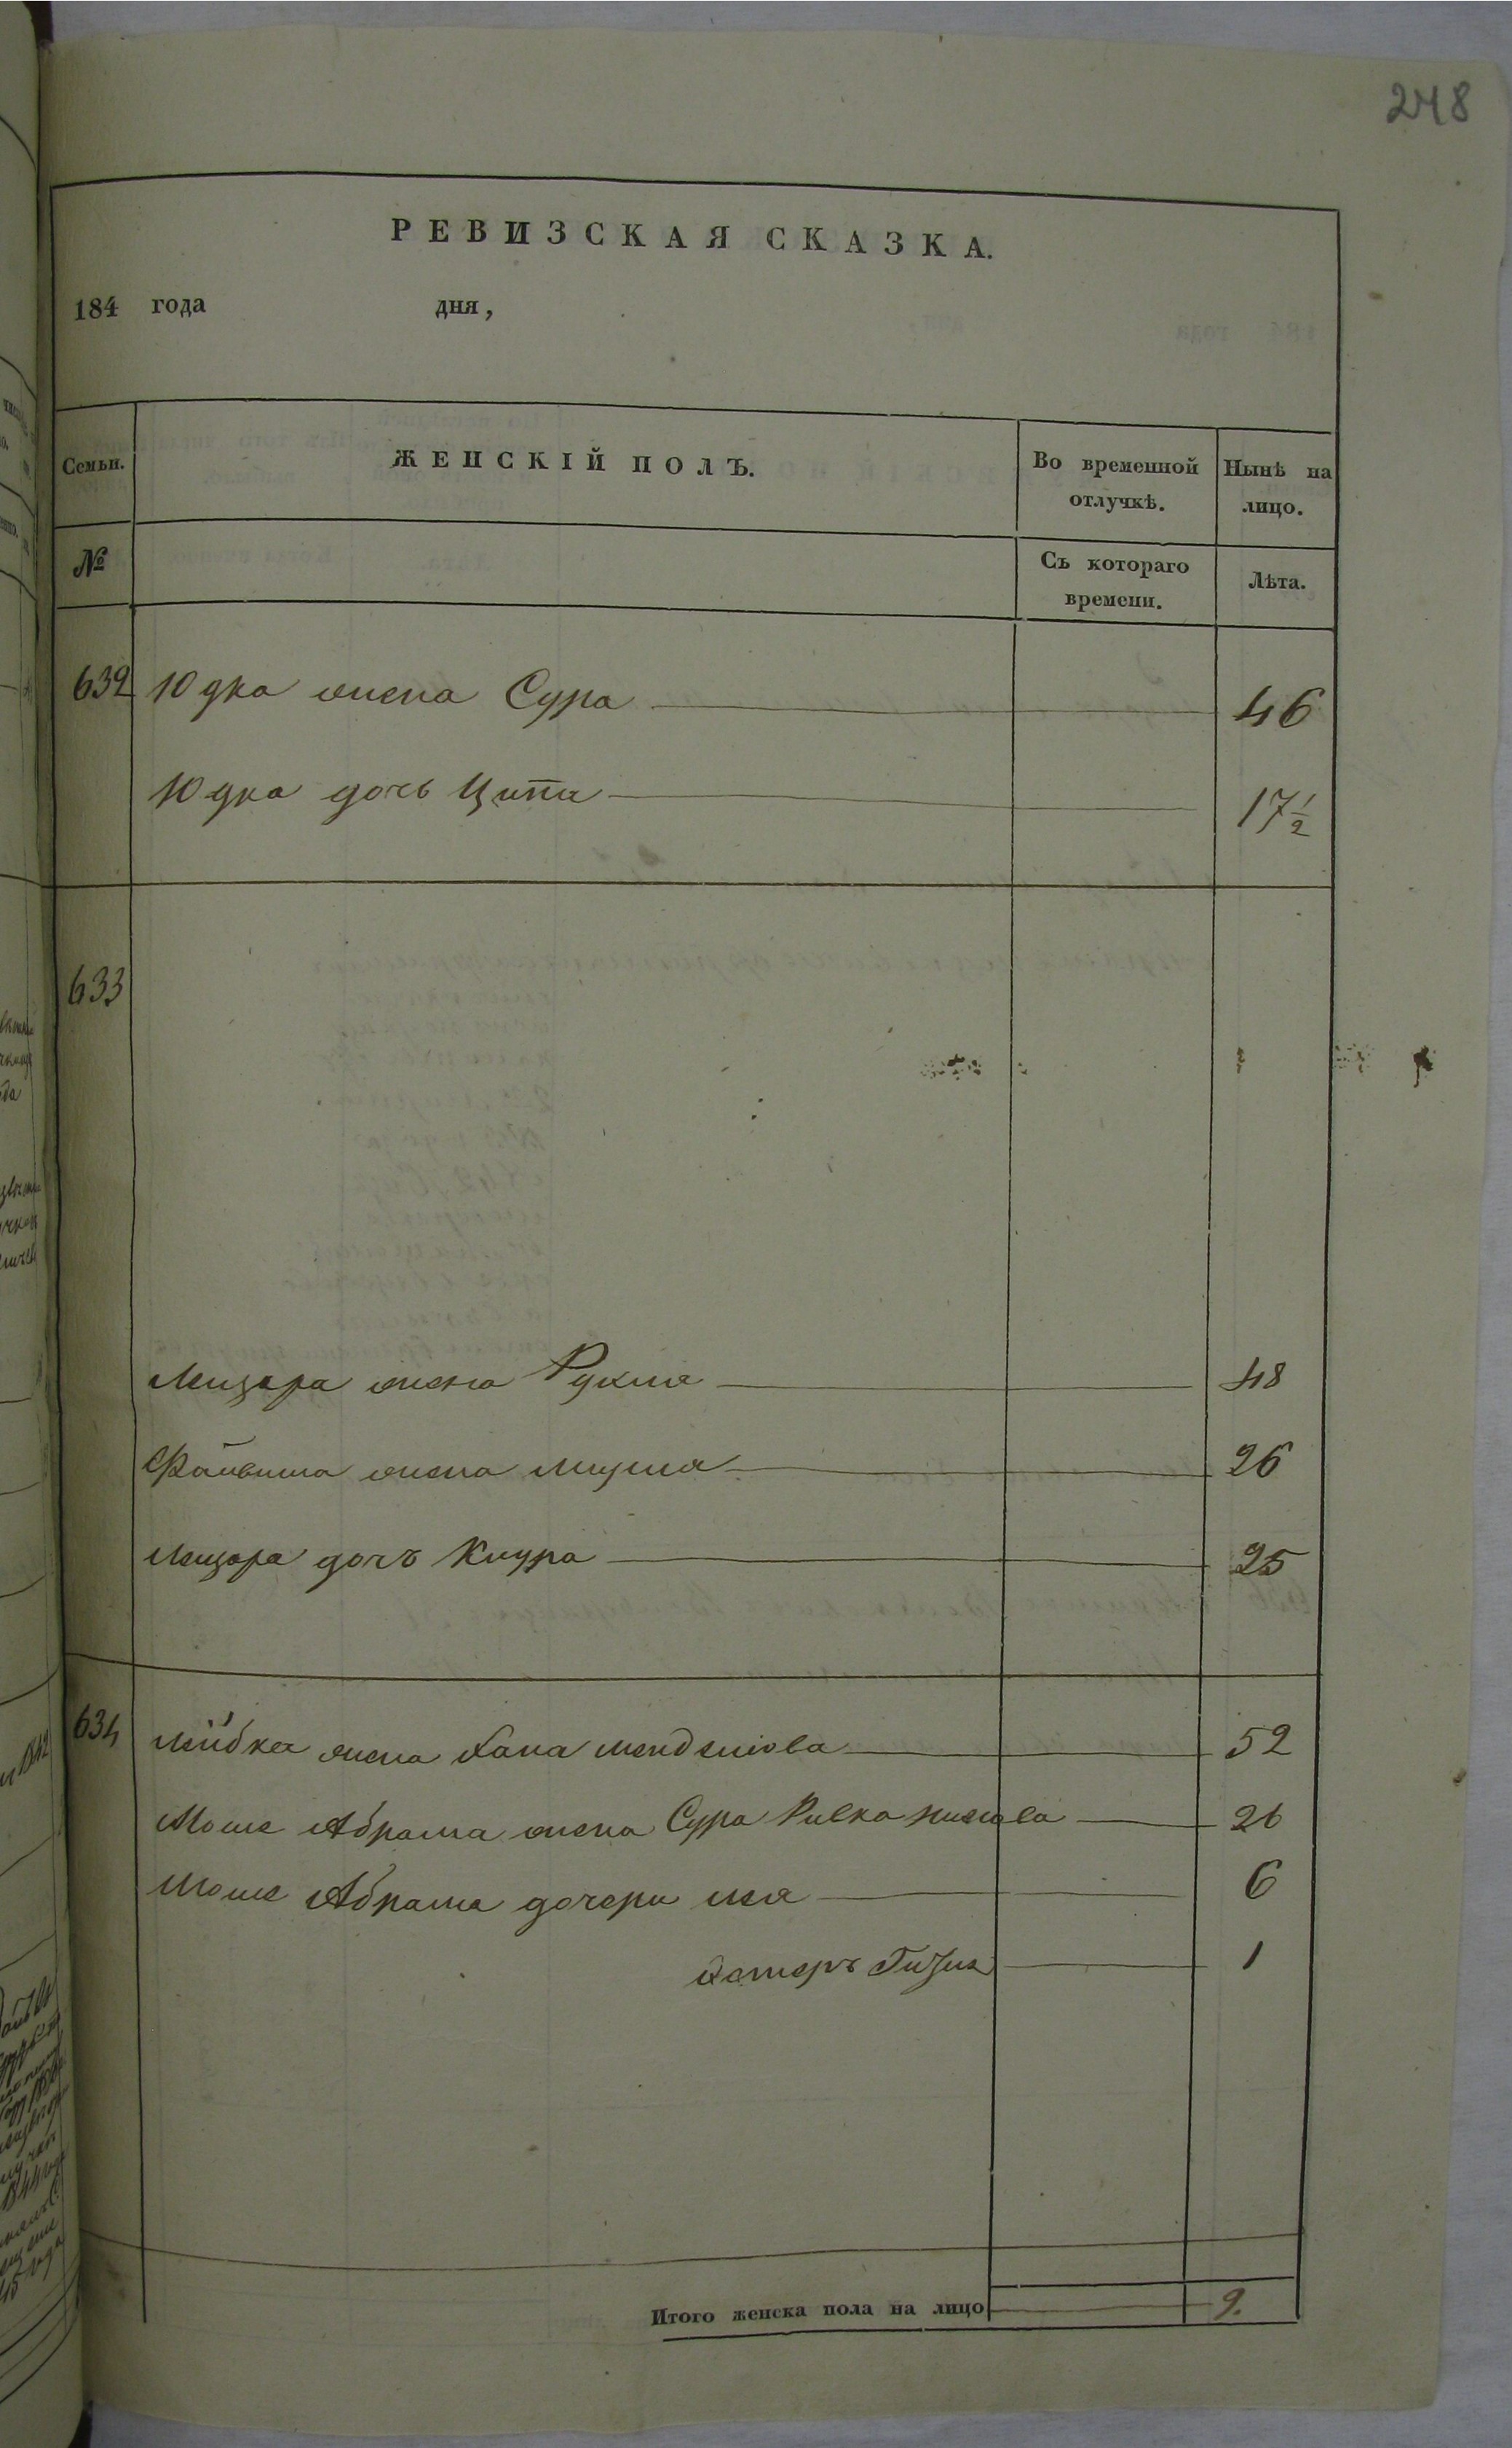 248
РЕВИЗСКАЯ СКАЗКА.
184 года дня,
Семьи. ЖЕНСКІЙ ПОЛЪ. Во временной отлучкѣ. Нынѣ на лицо.
№ Съ котораго времени. Лѣта.
632 Юдка жена Сура 46
Юдка дочь Ципа 17½
633
жена 48
Файвиша жена 26
дочъ 25
634 Лейбка жена Хана Менделіова 52
Моше Абрама жена Сура Ривка 26
Моше Абрама дочери 6
Естеръ 1
Итого женска пола на лицо 9.